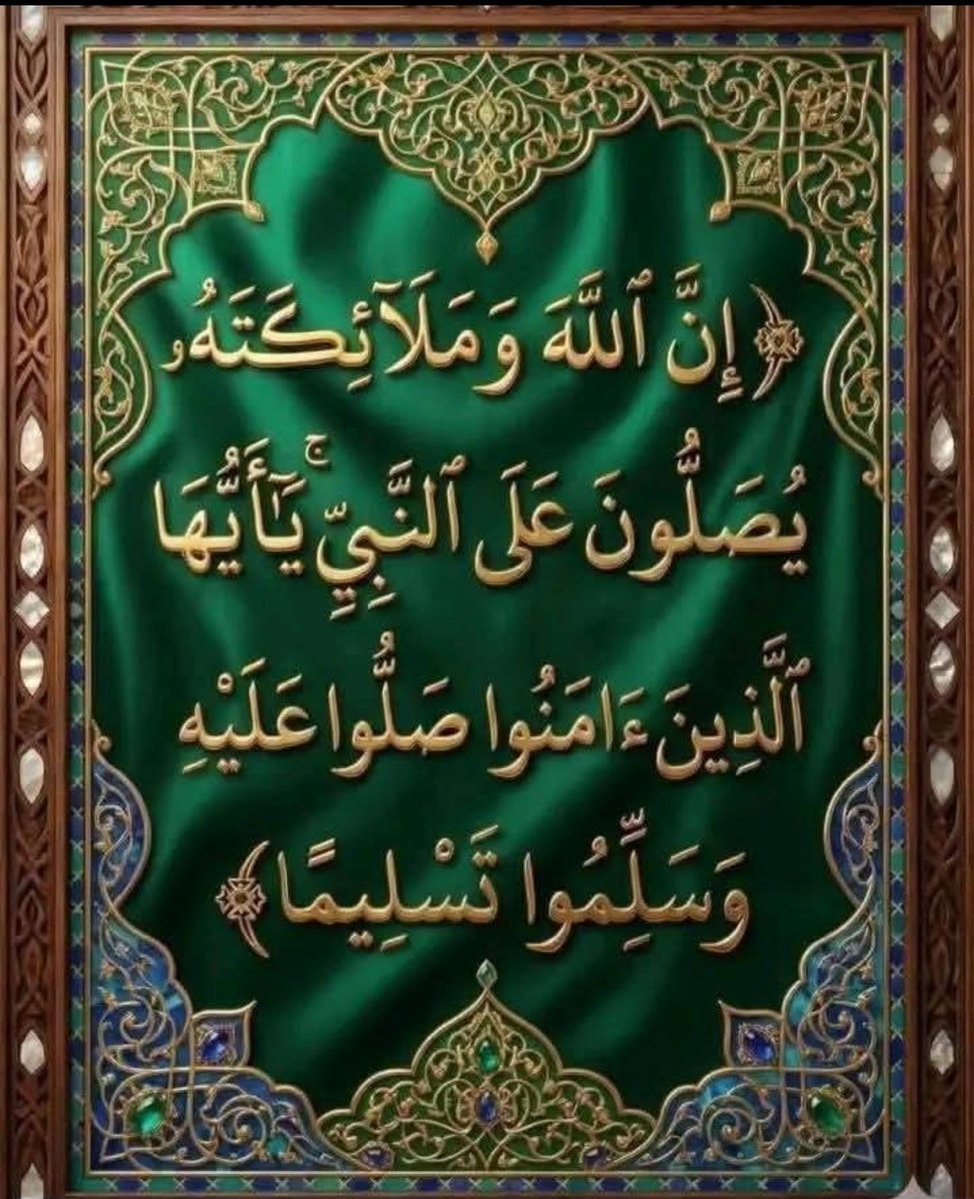 ﴿إِنَّ ٱللَّهَ وَمَلَآئِكَتَهُۥ
يُصَلُّونَ عَلَى ٱلنَّبِيِّۚ يَٰٓأَيُّهَا
ٱلَّذِينَ ءَامَنُوا صَلُّوا عَلَيْهِ
وَسَلِّمُوا تَسْلِيمًا﴾